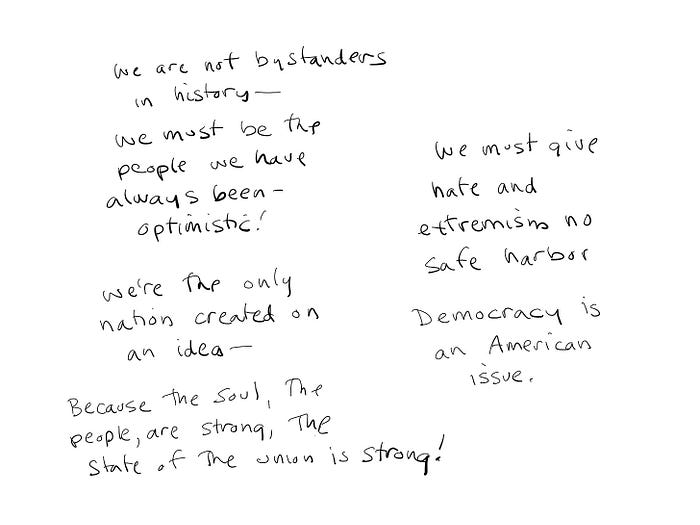 we are not bystanders
in history—
we must be the
people we have
always been-
optimistic!
we're the only
nation created on
an idea—
Because the soul, The
people, are strong, The
State of The union is strong!
we must give
hate and
extremism no
safe harbor
Democracy is
an American
issue.